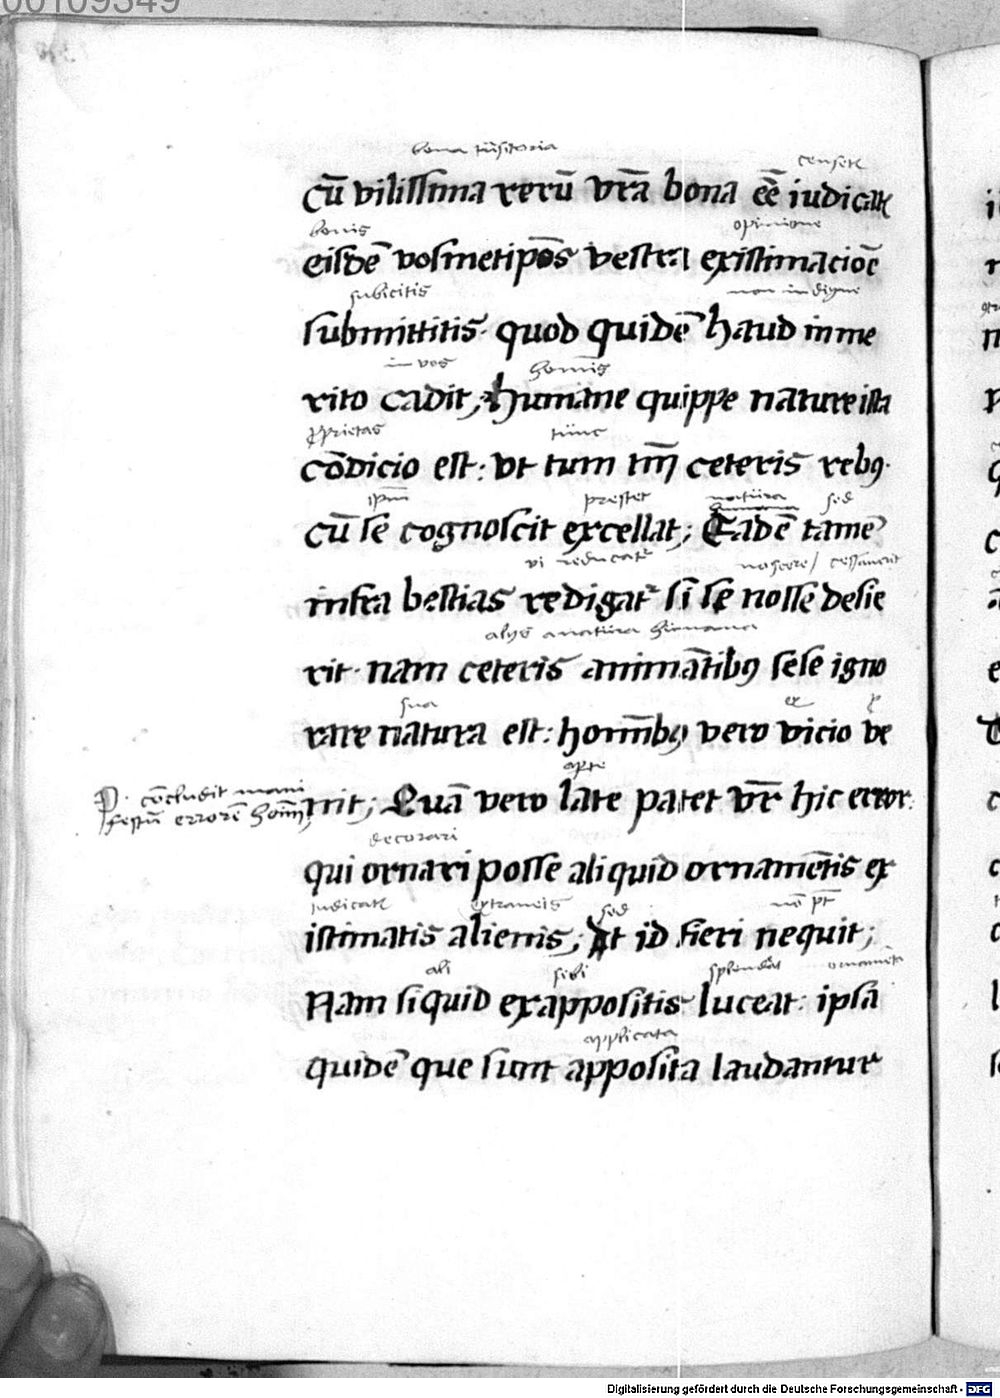 00109349
bona tͣsitoria
censetꝭ
cū vilissima rerū vr̄a bona eē iudicatꝭ
bonis
opinione
eisdē vosmetipōs vestra existimacioē
subicitis
non indigne
submittitis· quod quidē haud inme
in vos
hominis
rito cadit; humane quippe nature ista
ꝓprietas
tūnc
cōdicio est: vt tum tm̄ ceteris rebꝯ·
ipm̄
prestet
natura
sed
cū se cognoscit excellat; Eadē tamē
vi reducatᷣ
noscere/ cessauerit
infra bestias redigatᷣ si se nosse desie
alijs a natura humana
rit· nam ceteris animātibꝯ sese igno
sua
ex
rare natura est: homībꝯ vero vicio ve
aperte
P· cōcludit mani
festū errorē homīs
nit; Quā vero late patet vr̄ hic error:
decorari
qui ornari posse aliquid ornamētis ex
iudicatꝭ
extraneis
sed
nō pt̄
istimatis alienis; At id fieri nequit;
ali
sibi
splendeat
ornamēta
Nam siquid ex appositis luceat: ipsa
applicata
quidē que sunt apposita laudantur
Digitalisierung gefördert durch die Deutsche Forschungsgemeinschaft - DFG